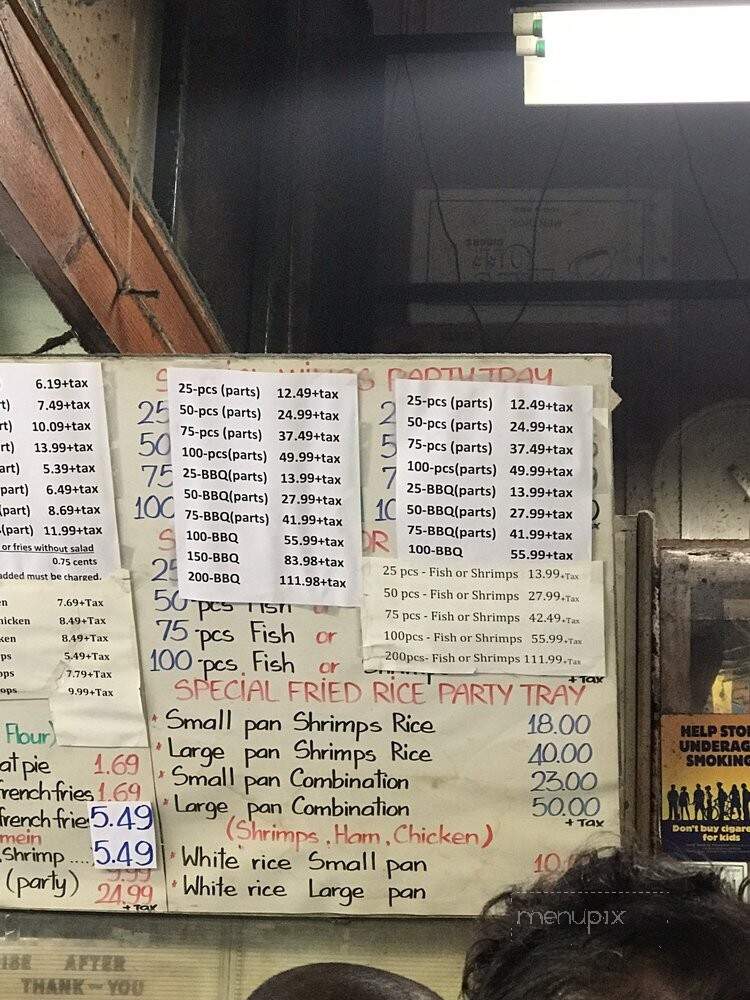 6.19+tax
7.49+tax
10.09+tax
13.99+tax
5.39+tax
6.49+tax
8.69+tax
11.99+tax
or fries without salad
0.75 cents
added must be charged.
7.69+Tax
8.49+Tax
8.49+Tax
5.49+Tax
7.79+Tax
9.99+Tax
Flour)
pie 1.69
french fries 1.69
french fries 5.49
mein
Shrimp .... 5.49
(party) 24.99
+ Tax
WINGS PARTY TRAY
25-pcs (parts) 12.49+tax
50-pcs (parts) 24.99+tax
75-pcs (parts) 37.49+tax
100-pcs(parts) 49.99+tax
25-BBQ(parts) 13.99+tax
50-BBQ(parts) 27.99+tax
75-BBQ(parts) 41.99+tax
100-BBQ 55.99+tax
150-BBQ 83.98+tax
200-BBQ 111.98+tax
25-pcs (parts) 12.49+tax
50-pcs (parts) 24.99+tax
75-pcs (parts) 37.49+tax
100-pcs(parts) 49.99+tax
25-BBQ(parts) 13.99+tax
50-BBQ(parts) 27.99+tax
75-BBQ(parts) 41.99+tax
100-BBQ 55.99+tax
25 pcs - Fish or Shrimps 13.99+Tax
50 pcs - Fish or Shrimps 27.99+Tax
75 pcs - Fish or Shrimps 42.49+Tax
100pcs - Fish or Shrimps 55.99+Tax
200pcs- Fish or Shrimps 111.99+Tax
25
50
75
100
OR
25
50 pcs Fish or
75 pcs Fish or
100 pcs Fish or
+ Tax
SPECIAL FRIED RICE PARTY TRAY
* Small pan Shrimps Rice 18.00
* Large pan Shrimps Rice 40.00
* Small pan Combination 23.00
* Large pan Combination 50.00
+ Tax
(Shrimps, Ham, Chicken)
* White rice Small pan
* White rice Large pan
HELP STOP
UNDERAGE
SMOKING
Don't buy
for kids
AFTER
THANK YOU
menupix